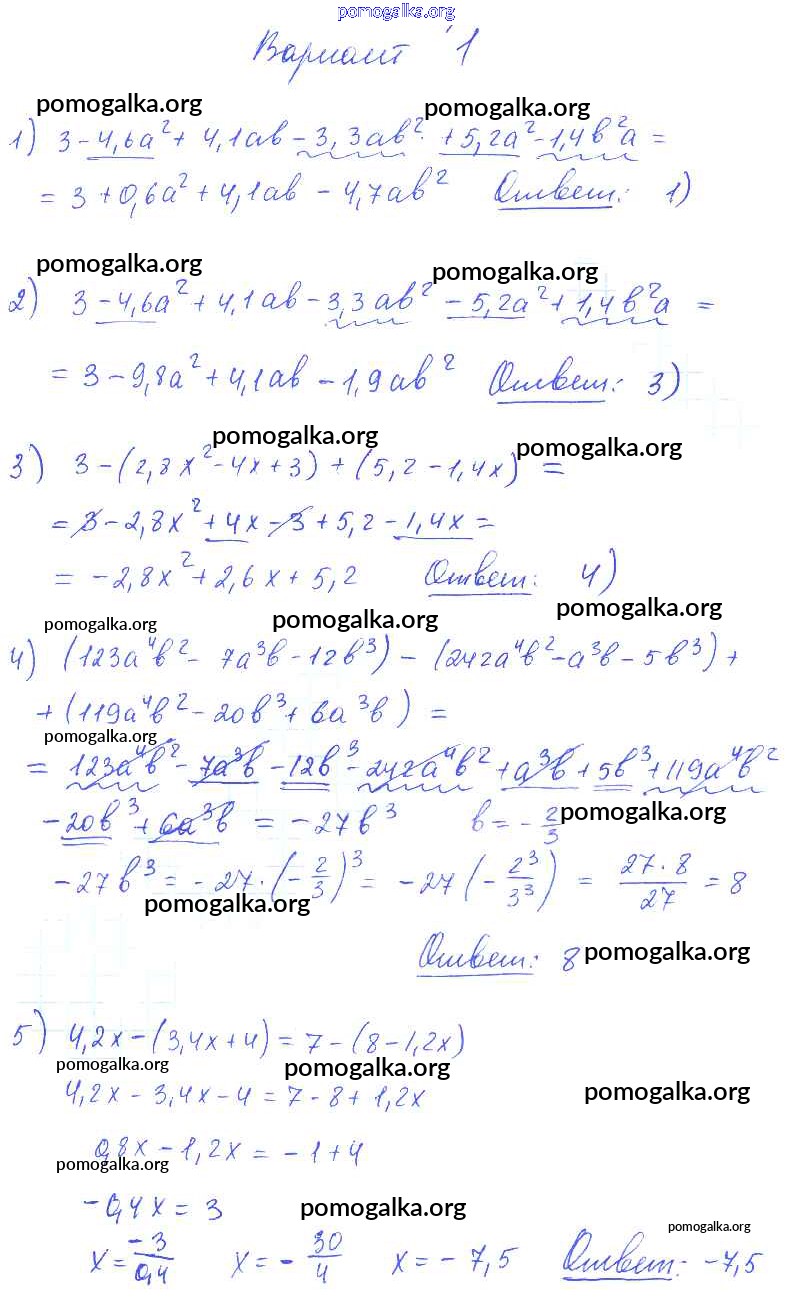 pomogalka.org
Вариант 1
pomogalka.org pomogalka.org
1) 3 - 4,6a² + 4,1ab - 3,3ab² + 5,2a² - 1,4b²a =
= 3 + 0,6a² + 4,1ab - 4,7ab² Ответ: 1)
pomogalka.org pomogalka.org
2) 3 - 4,6a² + 4,1ab - 3,3ab² - 5,2a² + 1,4b²a =
= 3 - 9,8a² + 4,1ab - 1,9ab² Ответ: 3)
pomogalka.org pomogalka.org
3) 3 - (2,8x² - 4x + 3) + (5,2 - 1,4x) =
= 3 - 2,8x² + 4x - 3 + 5,2 - 1,4x =
= -2,8x² + 2,6x + 5,2 Ответ: 4)
pomogalka.org pomogalka.org pomogalka.org
4) (123a⁴b² - 7a³b - 12b³) - (242a⁴b² - a³b - 5b³) +
+ (119a⁴b² - 20b³ + 6a³b) =
pomogalka.org
= 123a⁴b² - 7a³b - 12b³ - 242a⁴b² + a³b + 5b³ + 119a⁴b²
- 20b³ + 6a³b = -27b³ b = -2/3 pomogalka.org
-27b³ = -27 · (-2/3)³ = -27 (-2³/3³) = 27·8/27 = 8
pomogalka.org
Ответ: 8 pomogalka.org
5) 4,2x - (3,4x + 4) = 7 - (8 - 1,2x)
pomogalka.org pomogalka.org
4,2x - 3,4x - 4 = 7 - 8 + 1,2x pomogalka.org
0,8x - 1,2x = -1 + 4
pomogalka.org
-0,4x = 3 pomogalka.org
pomogalka.org
x = -3/0,4 x = -30/4 x = -7,5 Ответ: -7,5